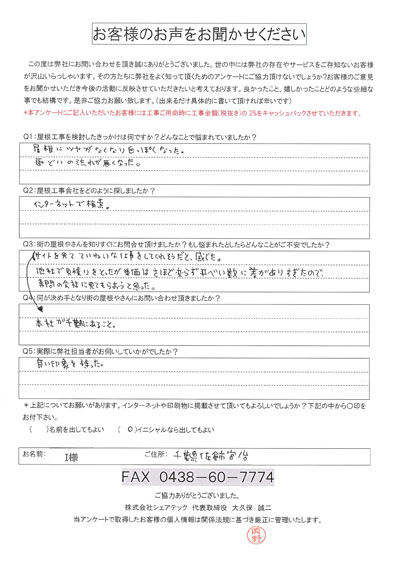 お客様のお声をお聞かせください
この度は弊社にお問い合わせを頂き誠にありがとうございました。世の中には弊社の存在やサービスをご存知ないお客様
が沢山いらっしゃいます。その方たちに弊社をよく知って頂くためのアンケートにご協力頂けないでしょうか?お客様のご意見
をお聞かせいただき今後の活動に反映させていただきたいと考えております。良かったこと、嬉しかったことどのような些細な
事でも結構です。是非ご協力お願い致します。(出来るだけ具体的に書いて頂ければ幸いです)
*本アンケートにご記入いただいたお客様には工事ご用命時に工事金額(税抜き)の2%をキャッシュバックさせていただきます。
Q1:屋根工事を検討したきっかけは何ですか?どんなことで悩まれていましたか?
屋根にツヤがなくなり白っぽくなった。
雨どいの流れが悪くなった。
Q2:屋根工事会社をどのように探しましたか?
インターネットで検索。
Q3:街の屋根やさんを知りすぐにお問合せ頂けましたか?もし悩まれたとしたらどんなことがご不安でしたか?
サイトを見てていねいな仕事をしてくれそうだと、感じた。
他社で見積りをとったが単価はさほど変らず
数に差がありすぎたので、
専門の会社に見てもらおうと思った。
Q4:何が決め手となり街の屋根やさんにお問い合わせ頂きましたか?
本社が千葉にあること。
Q5:実際に弊社担当者がお伺いしていかがでしたか?
良い印象を持った。
*上記についてお願いがあります。インターネットや印刷物に掲載させて頂いてもよろしいでしょうか?下記の中から〇印を
お付下さい。
( )名前を出してもよい ( O )イニシャルなら出してもよい
お名前: I様 ご住所: 千葉県
FAX 0438-60-7774
ご協力ありがとうございました。
株式会社シェアテック 代表取締役 大久保 誠二
当アンケートで取得したお客様の個人情報は関係法規に基づき厳正に管理いたします。